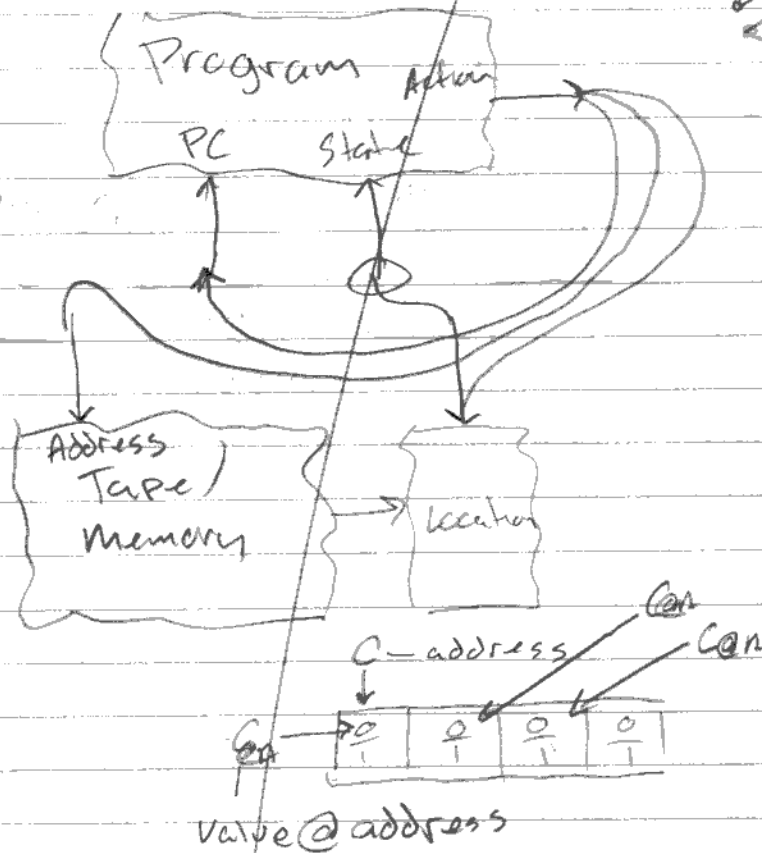 Program
Action
PC
State
Address
Tape/
Memory
Location
C@n
C-address
C@n
C@n
0/1 0/1 0/1 0/1
Value @ address